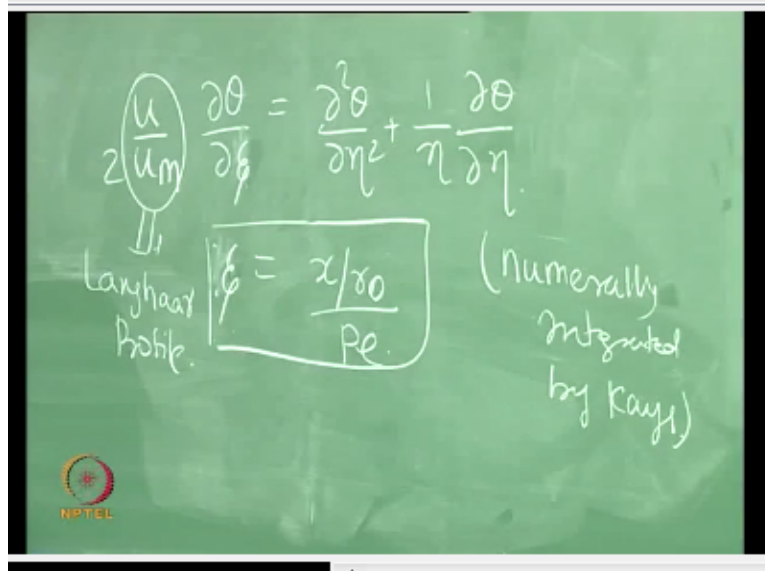 2 u/um ∂θ/∂ξ = ∂²θ/∂η² + 1/η ∂θ/∂η.
Langhaar
Profile.
ξ = x/r0 / Pe.
(numerally
integrated
by Kays)
NPTEL